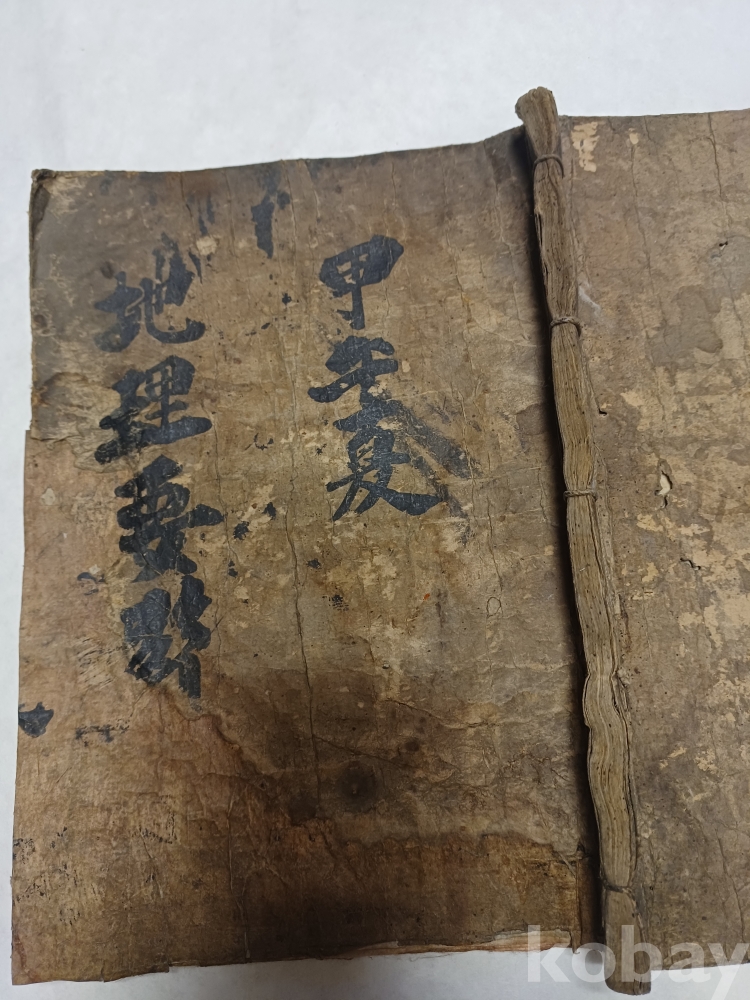 甲午夏
地理要
kobay